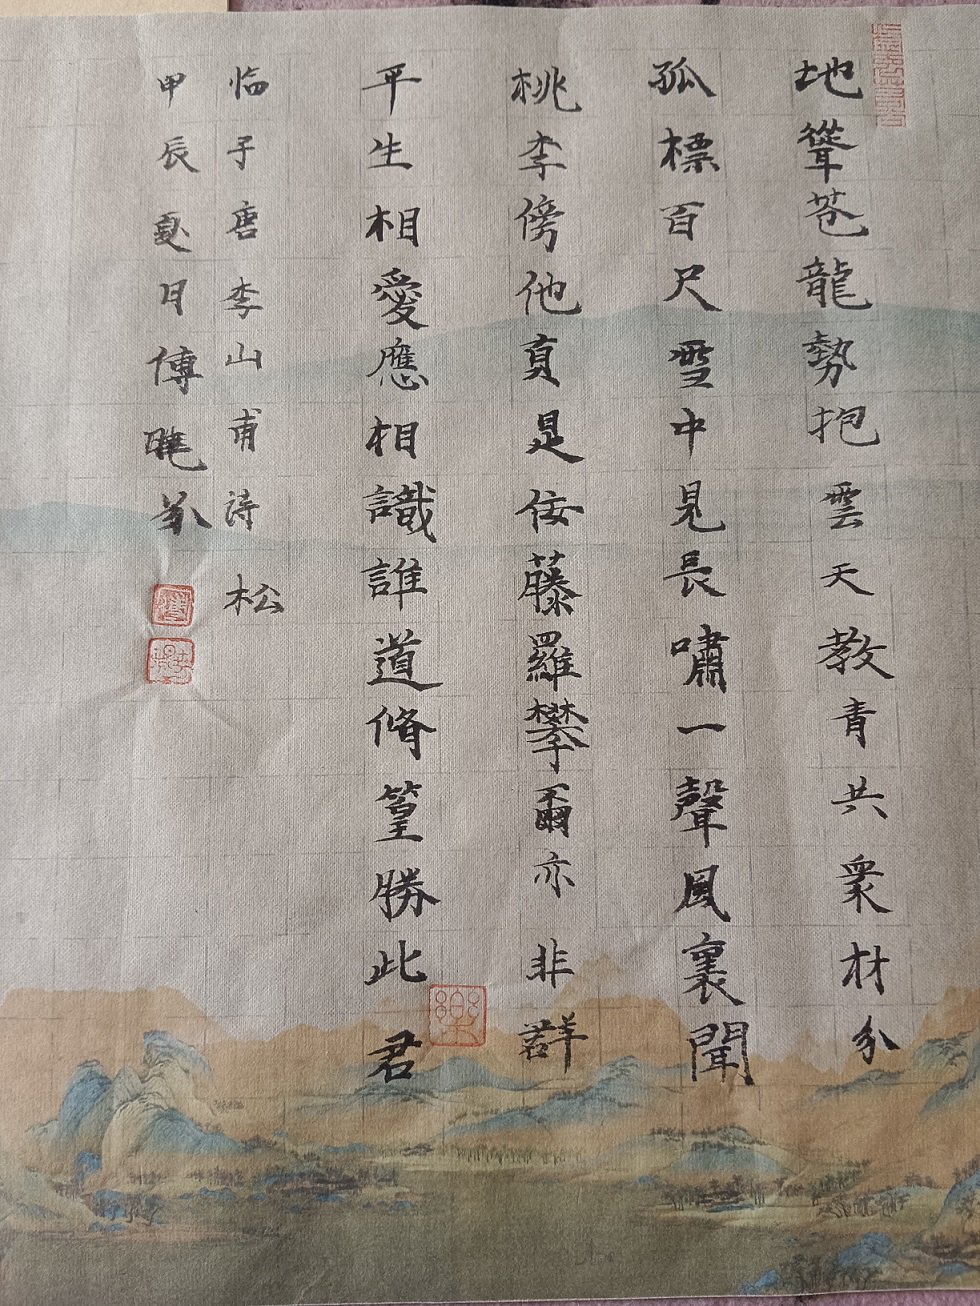 地聳苍龍勢抱雲天教青共衆材分
孤標百尺雪中見長嘯一聲風裏聞
桃李傍他真是佞藤羅攀爾亦非群
平生相愛應相識誰道脩篁勝此君
临于唐李山甫詩 松
甲辰夏月傅曉